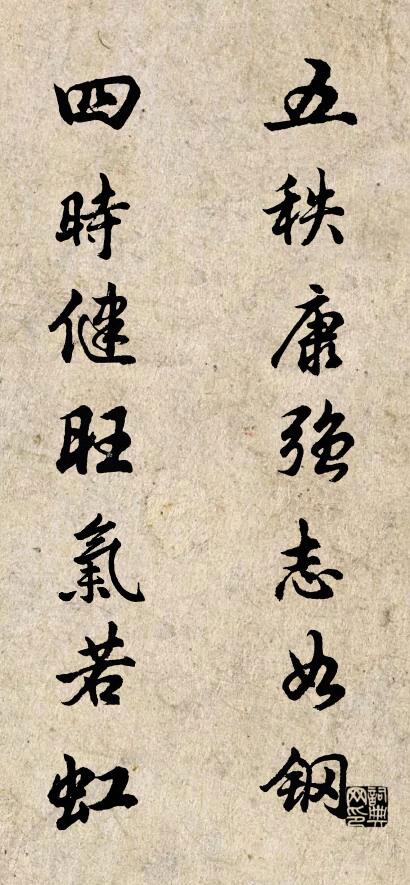 五秩康強志如鋼
四時健旺氣若虹
詞典网印